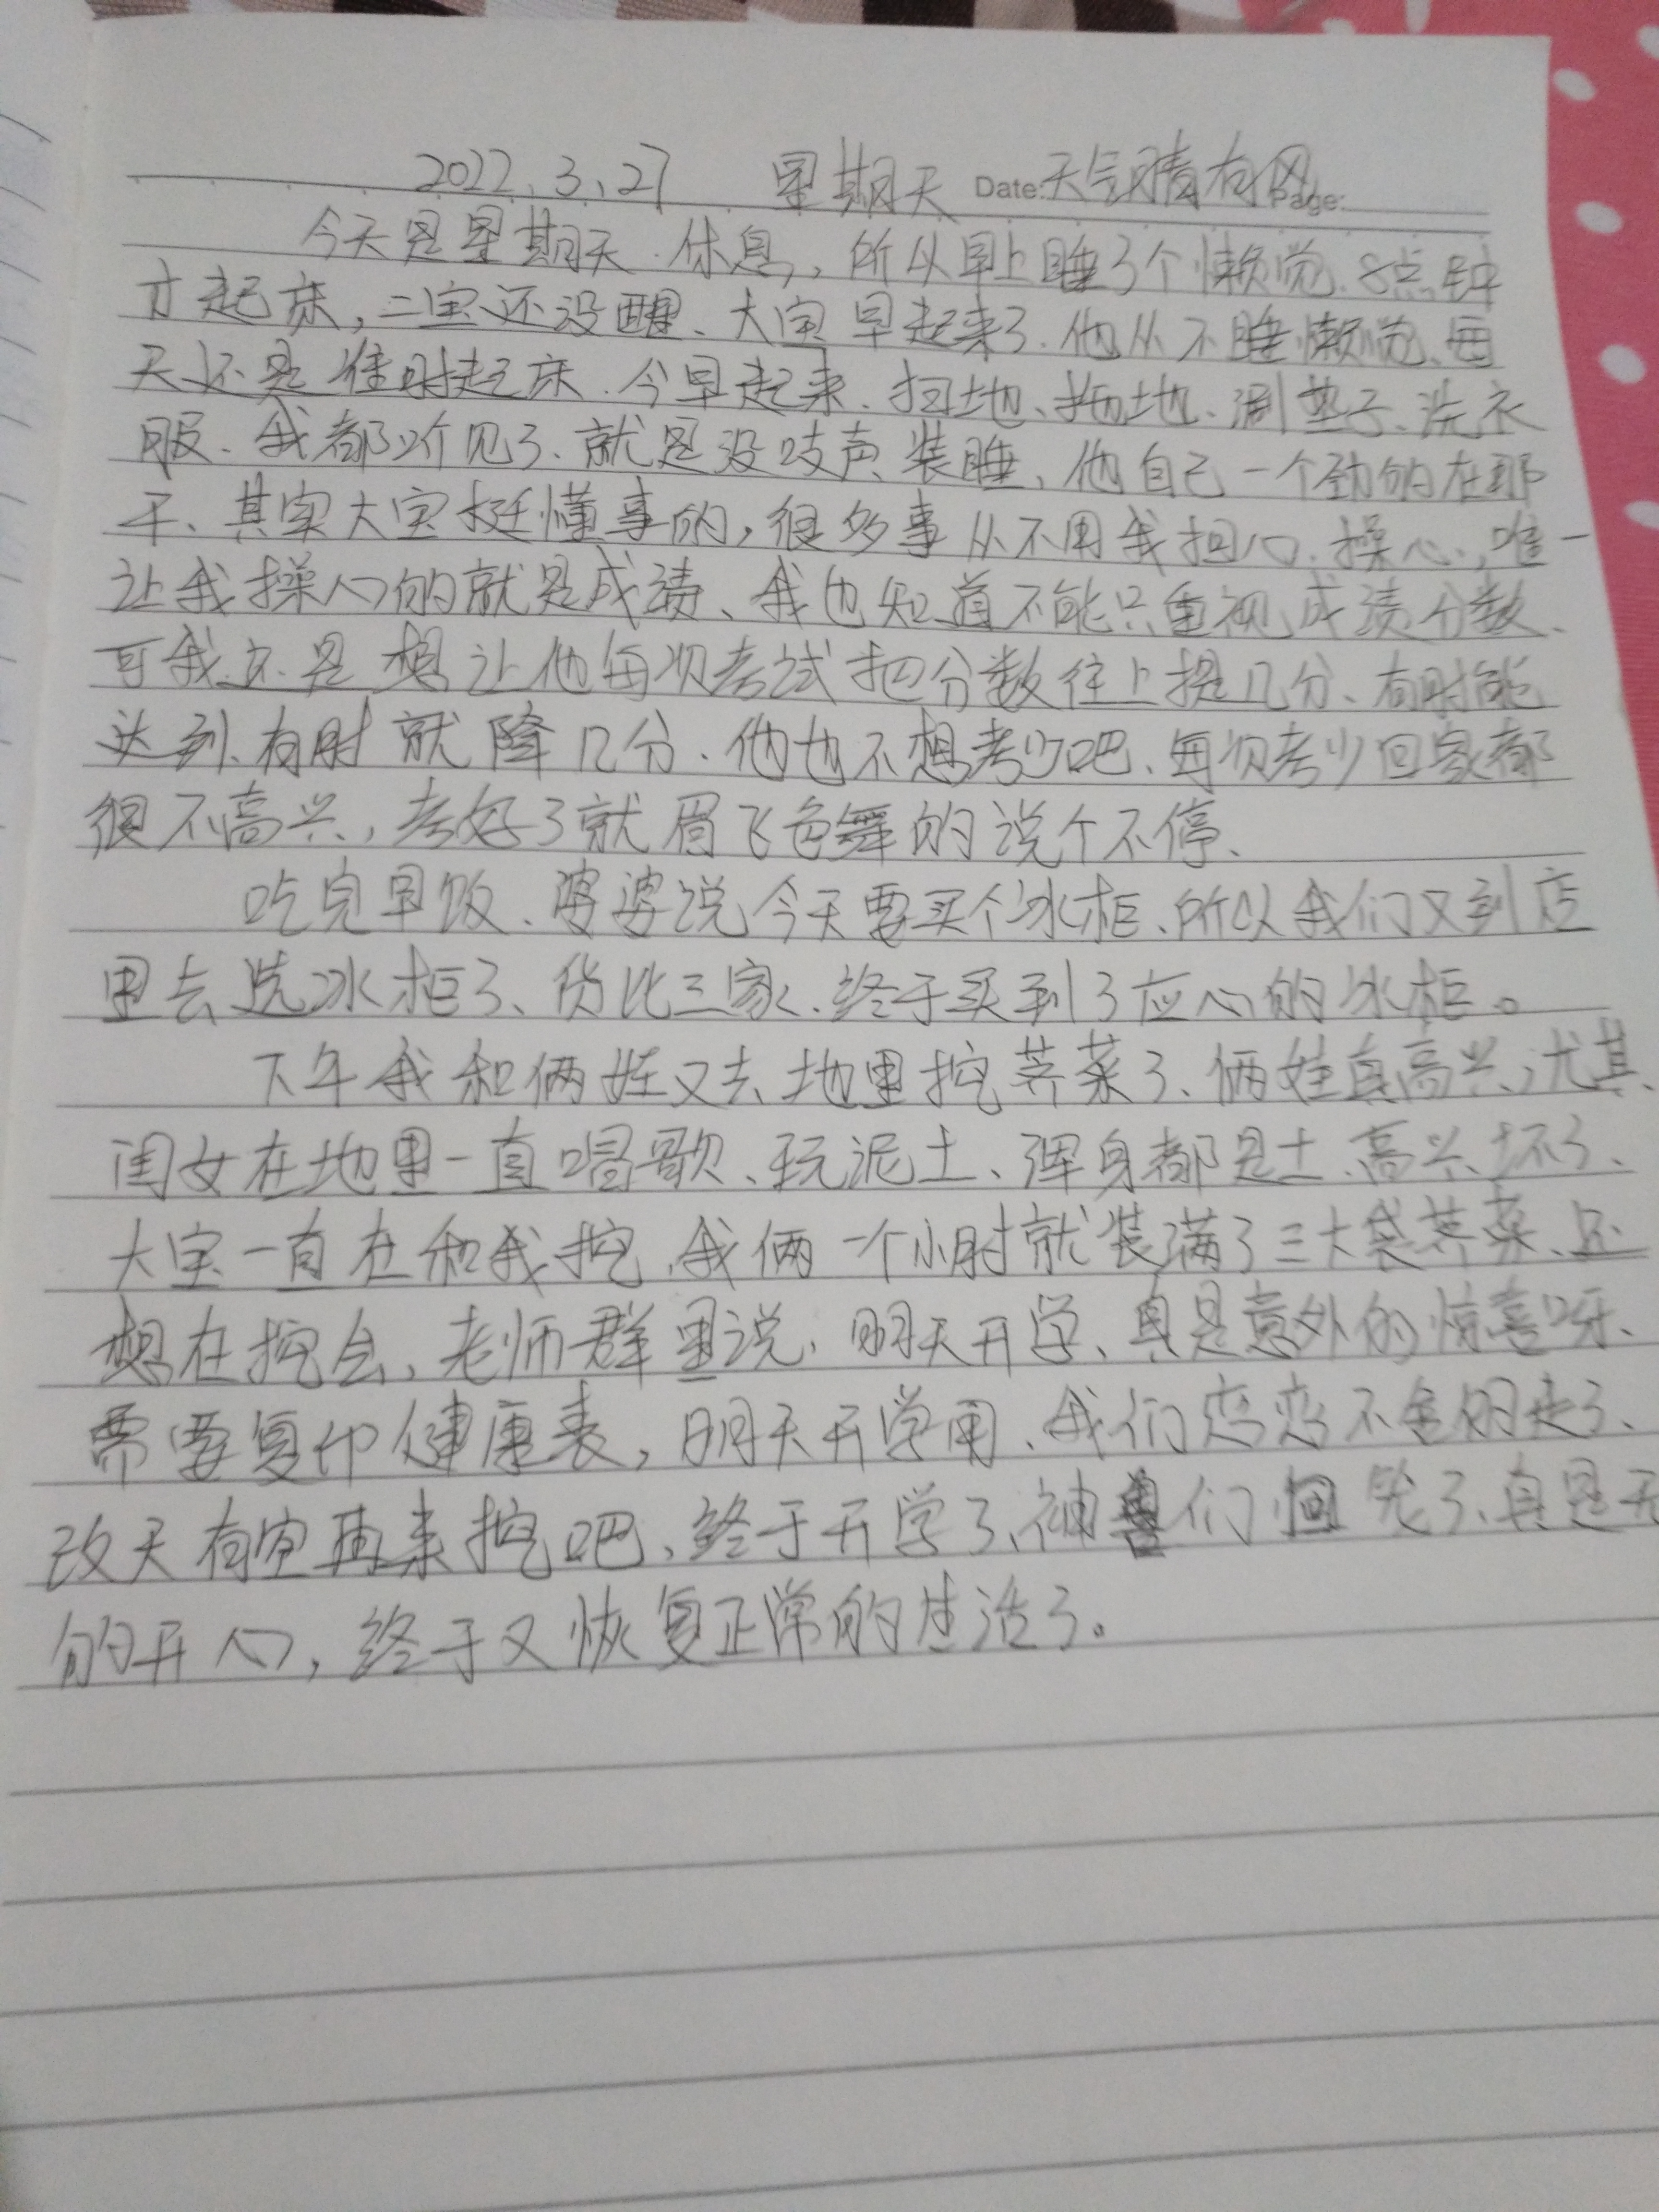 2022.3.27 星期天 Date:天气晴有风Page:
今天是星期天.休息,所以早上睡了个懒觉.8点钟
才起床,二宝还没醒、大宝早起来了.他从不睡懒觉、每
天还是准时起床.今早起来、扫地、拖地、涮垫子、洗衣
服、我都听见了、就是没吱声装睡、他自己一个劲的在那
干、其实大宝挺懂事的,很多事从不用我担心.操心,唯一
让我操心的就是成绩、我也知道不能只重视成绩分数、
可我还是想让他每次考试把分数往上提几分、有时能
达到、有时就降几分.他也不想考少吧、每次考少回家都
很不高兴,考好了就眉飞色舞的说个不停、
吃完早饭、婆婆说今天要买个冰柜、所以我们又到店
里去选冰柜了、货比三家、终于买到了应心的冰柜。
下午我和俩娃又去地里挖荠菜了、俩娃真高兴,尤其
闺女在地里一直唱歌、玩泥土、浑身都是土、高兴坏了、
大宝一直在和我挖、我俩一个小时就装满了三大袋荠菜、还
想在挖会,老师群里说,明天开学、真是意外的惊喜呀、
需要复印健康表,明天开学用、我们恋恋不舍的走了、
改天有空再来挖吧、终于开学了、神兽们回笼了、真是无
的开心,终于又恢复正常的生活了。